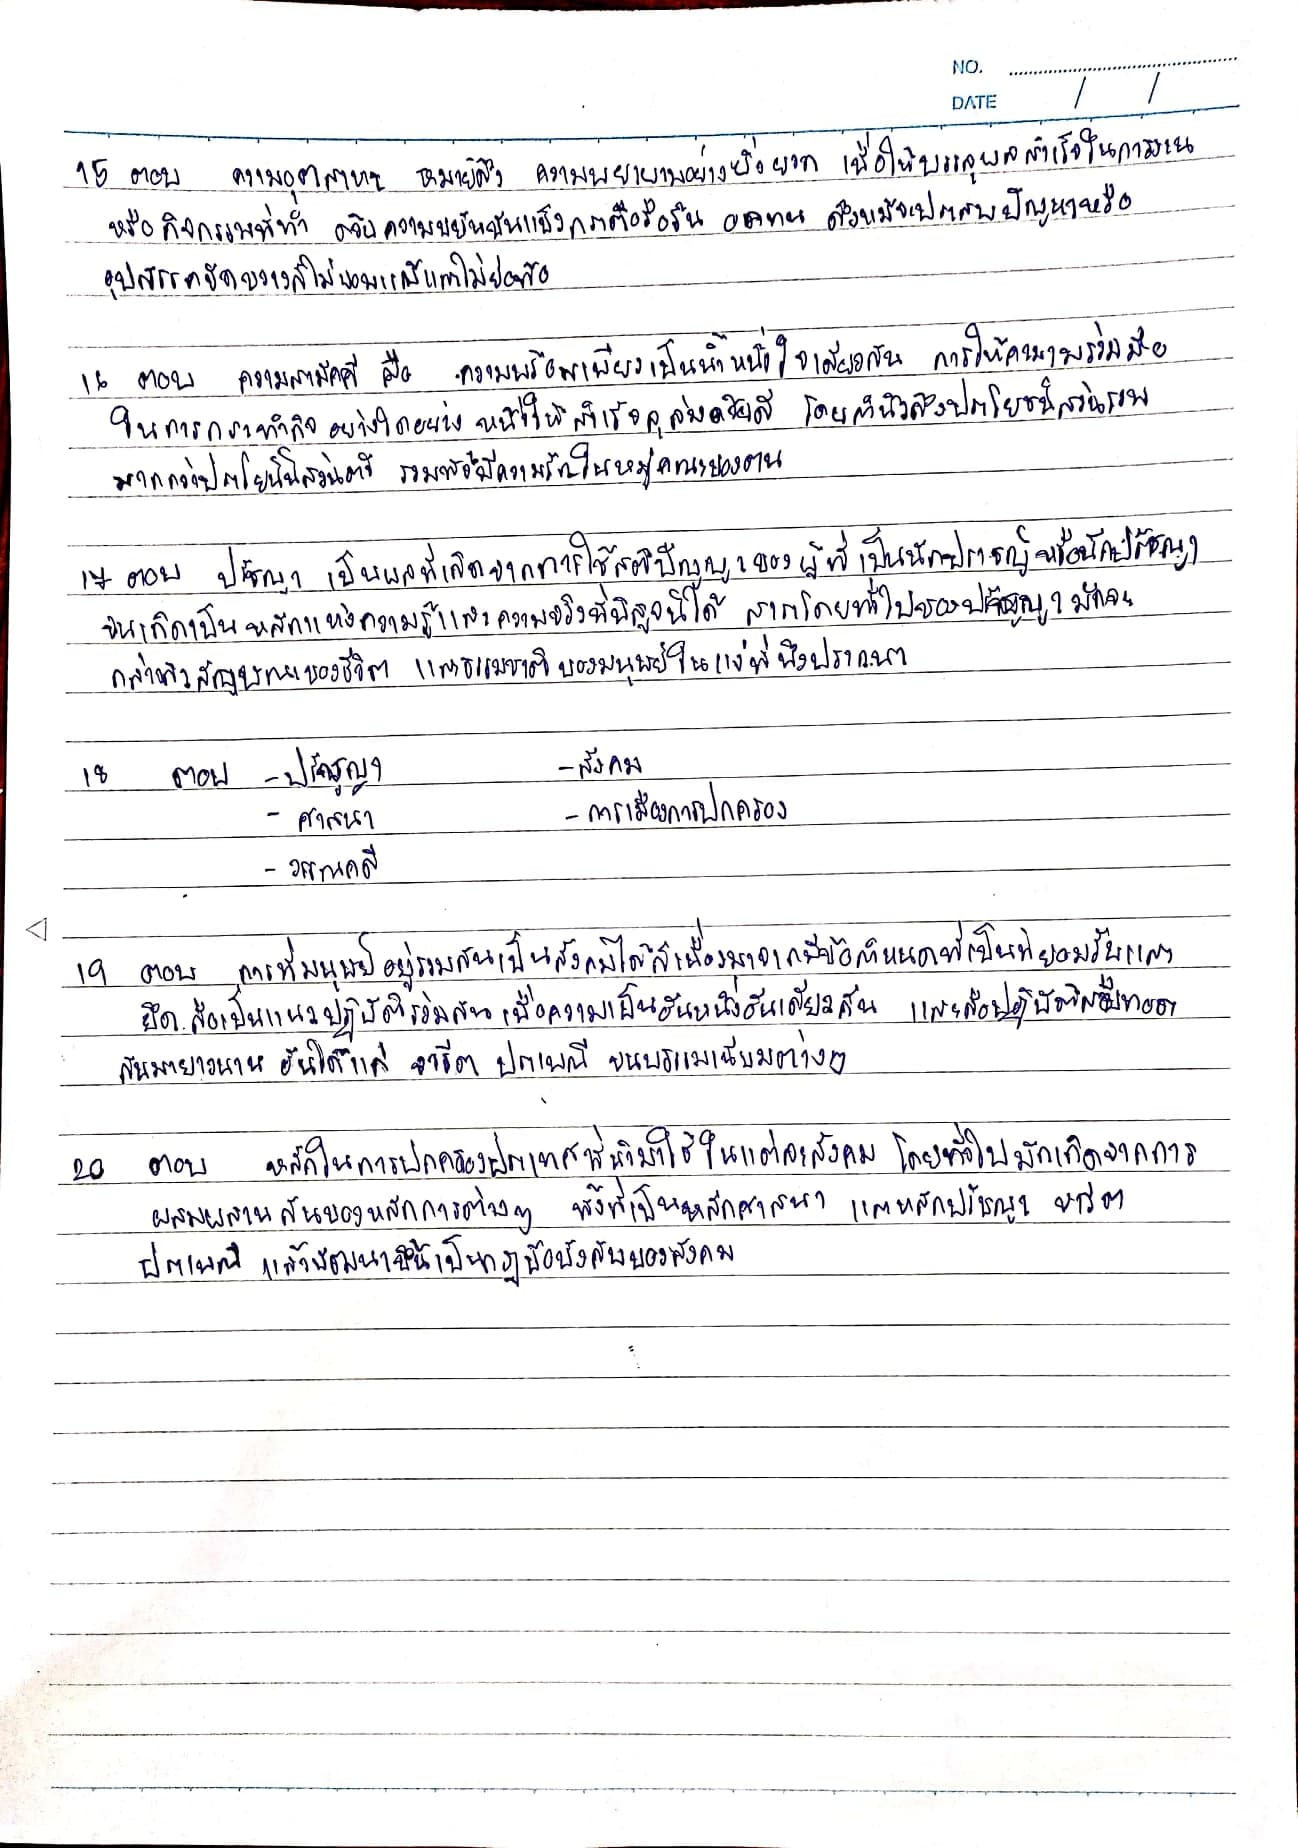 NO.
DATE / /
15 ตอบ ความอุตสาหะ หมายถึง ความพยายามอย่างยิ่งยวด เพื่อให้บรรลุผลสำเร็จในการงาน
หรือกิจกรรมที่ทำ ด้วยความขยันขันแข็งกระตือรือร้น อดทน ถึงแม้จะประสบปัญหาหรือ
อุปสรรคขัดขวางก็ไม่ยอมแพ้และไม่ย่อท้อ
16 ตอบ ความสามัคคี คือ ความพร้อมเพียงเป็นน้ำหนึ่งใจเดียวกัน การให้ความร่วมมือ
ในการกระทำกิจอย่างใดอย่างหนึ่งให้สำเร็จลุล่วงด้วยดี โดยคำนึงถึงประโยชน์ส่วนรวม
มากกว่าประโยชน์ส่วนตัว รวมทั้งมีความรักในหมู่คณะของตน
17 ตอบ ปรัชญา เป็นผลที่เกิดจากการใช้สติปัญญาของ ผู้ที่เป็นนักปราชญ์หรือนักปรัชญา
จนเกิดเป็นหลักแห่งความรู้และความจริงที่พิสูจน์ได้ สาระโดยทั่วไปของปรัชญามักจะ
กล่าวถึงสัญชาตญาณของชีวิต และธรรมชาติของมนุษย์ในแง่ที่พึงปรารถนา
18 ตอบ - ปรัชญา - สังคม
- ศาสนา - การเมืองการปกครอง
- วรรณคดี
19 ตอบ การที่มนุษย์อยู่รวมกันเป็นสังคมได้ก็เนื่องมาจากมีข้อกำหนดที่เป็นที่ยอมรับและ
ยึดถือเป็นแนวปฏิบัติร่วมกัน เพื่อความเป็นอันหนึ่งอันเดียวกัน และถือปฏิบัติสืบทอด
กันมายาวนาน อันได้แก่ จารีต ประเพณี ขนบธรรมเนียมต่างๆ
20 ตอบ หลักในการปกครองประเทศที่นำมาใช้ในแต่ละสังคม โดยทั่วไปมักเกิดจากการ
ผสมผสานกันของหลักการต่างๆ ทั้งที่เป็นหลักศาสนา และหลักปรัชญา จารีต
ประเพณี แล้วพัฒนาขึ้นเป็นกฎข้อบังคับของสังคม